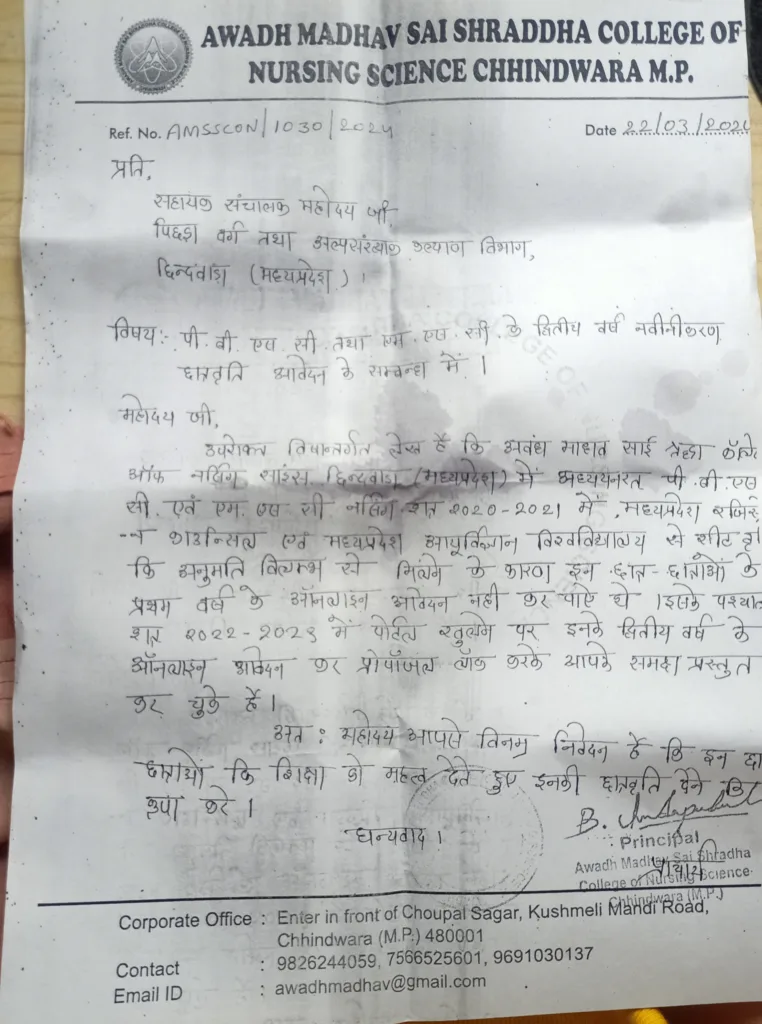 AWADH MADHAV SAI SHRADDHA COLLEGE OF
NURSING SCIENCE CHHINDWARA M.P.
Ref. No. AMSSCON/1030/2024
Date 22/03/202
प्रति,
सहायक संचालक महोदय जी,
पिछड़ा वर्ग तथा अल्पसंख्यक कल्याण विभाग,
छिन्दवाड़ा (मध्यप्रदेश)।
विषय:- पी. बी. एस. सी. तथा एम. एस. सी. के द्वितीय वर्ष नवीनीकरण
छात्रवृति आवेदन के सम्बन्ध में।
महोदय जी,
उपरोक्त विषयान्तर्गत लेख है कि अवध माधव साई श्रद्धा कॉले
ऑफ नर्सिंग साइंस छिन्दवाड़ा (मध्यप्रदेश) में अध्ययनरत पी. बी. एस
सी. एवं एम. एस. सी. नर्सिंग सत्र 2020-2021 में, मध्यप्रदेश
काउन्सिल एवं मध्यप्रदेश आयुर्विज्ञान विश्वविद्यालय से सीट
कि अनुमति विलम्भ से मिलने के कारण इन छात्र-छात्राओं के
प्रथम वर्ष के ऑनलाइन आवेदन नही कर पाए थे। इसके पश्चात
सत्र 2022-2023 में पोर्टल खुलने पर इनके द्वितीय वर्ष के
ऑनलाइन आवेदन कर प्रोपॉजल लॉक करके आपके समक्ष प्रस्तुत
कर चुके हैं।
अत: महोदय आपसे विनम्र निवेदन है कि इन छा
छात्राओं कि शिक्षा को महत्व देते हुए इनकी छात्रवृति देने कि
कृपा करे।
धन्यवाद।
Principal
Awadh Madhav Sai Shradha
प्राचार्य
College of Nursing Science
Chhindwara (M.P.)
Corporate Office : Enter in front of Choupal Sagar, Kushmeli Mandi Road,
Chhindwara (M.P.) 480001
Contact : 9826244059, 7566525601, 9691030137
Email ID : awadhmadhav@gmail.com